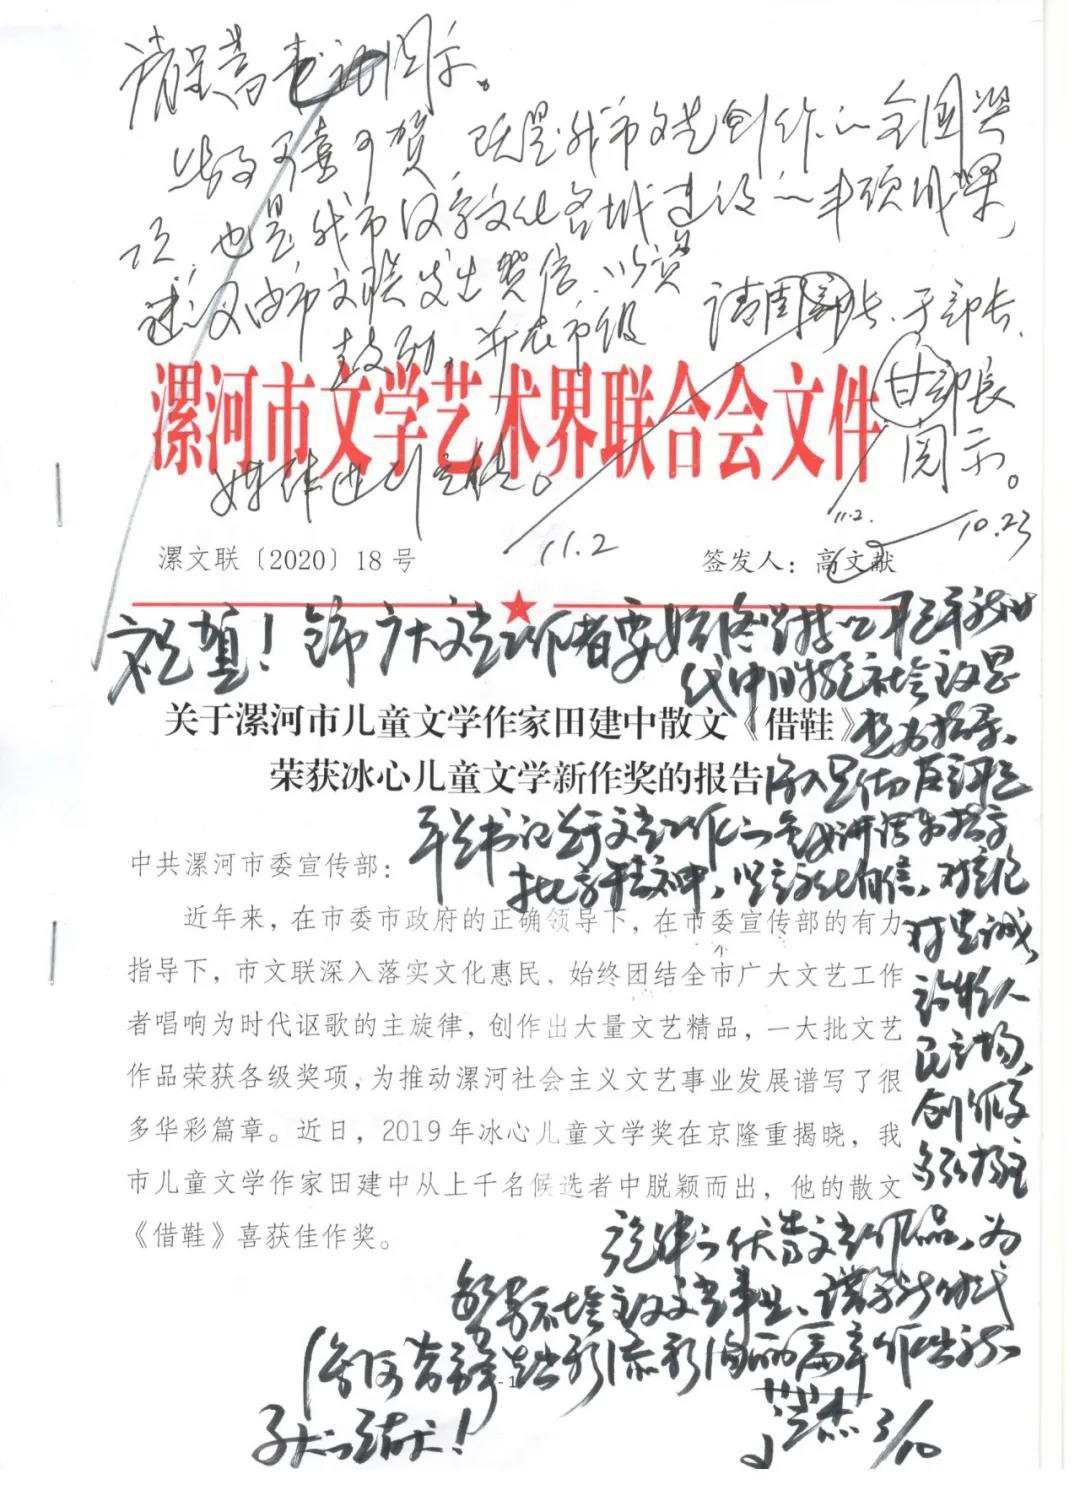 请呈蒿书记阅示。
此事可喜可贺,既是我市文艺创作的全国奖
项,也是我市汉字文化名城建设的一项成果,
建议由市文联发出贺信,以资
鼓励,并在市级
媒体进行宣传。
11.2
请周部长、于部长、
甘部长
阅示。
11.2.
10.23
漯河市文学艺术界联合会文件
漯文联〔2020〕18号
签发人:高文献
祝贺!全市广大文艺工作者要始终坚持以习近平新时
代中国特色社会主义思
想为指导,
深入贯彻落实习近
平总书记关于文艺工作的重要讲话和指示
批示精神,坚定文化自信,
对党忠诚,
站稳人
民立场,
创作更
多弘扬主
旋律的优秀文艺作品,为
繁荣社会主义文艺事业、谱写新时代
漯河
关于漯河市儿童文学作家田建中散文《借鞋》
荣获冰心儿童文学新作奖的报告
中共漯河市委宣传部:
近年来,在市委市政府的正确领导下,在市委宣传部的有力
指导下,市文联深入落实文化惠民,始终团结全市广大文艺工作
者唱响为时代讴歌的主旋律,创作出大量文艺精品,一大批文艺
作品荣获各级奖项,为推动漯河社会主义文艺事业发展谱写了很
多华彩篇章。近日,2019年冰心儿童文学奖在京隆重揭晓,我
市儿童文学作家田建中从上千名候选者中脱颖而出,他的散文
《借鞋》喜获佳作奖。
- 1
3/10